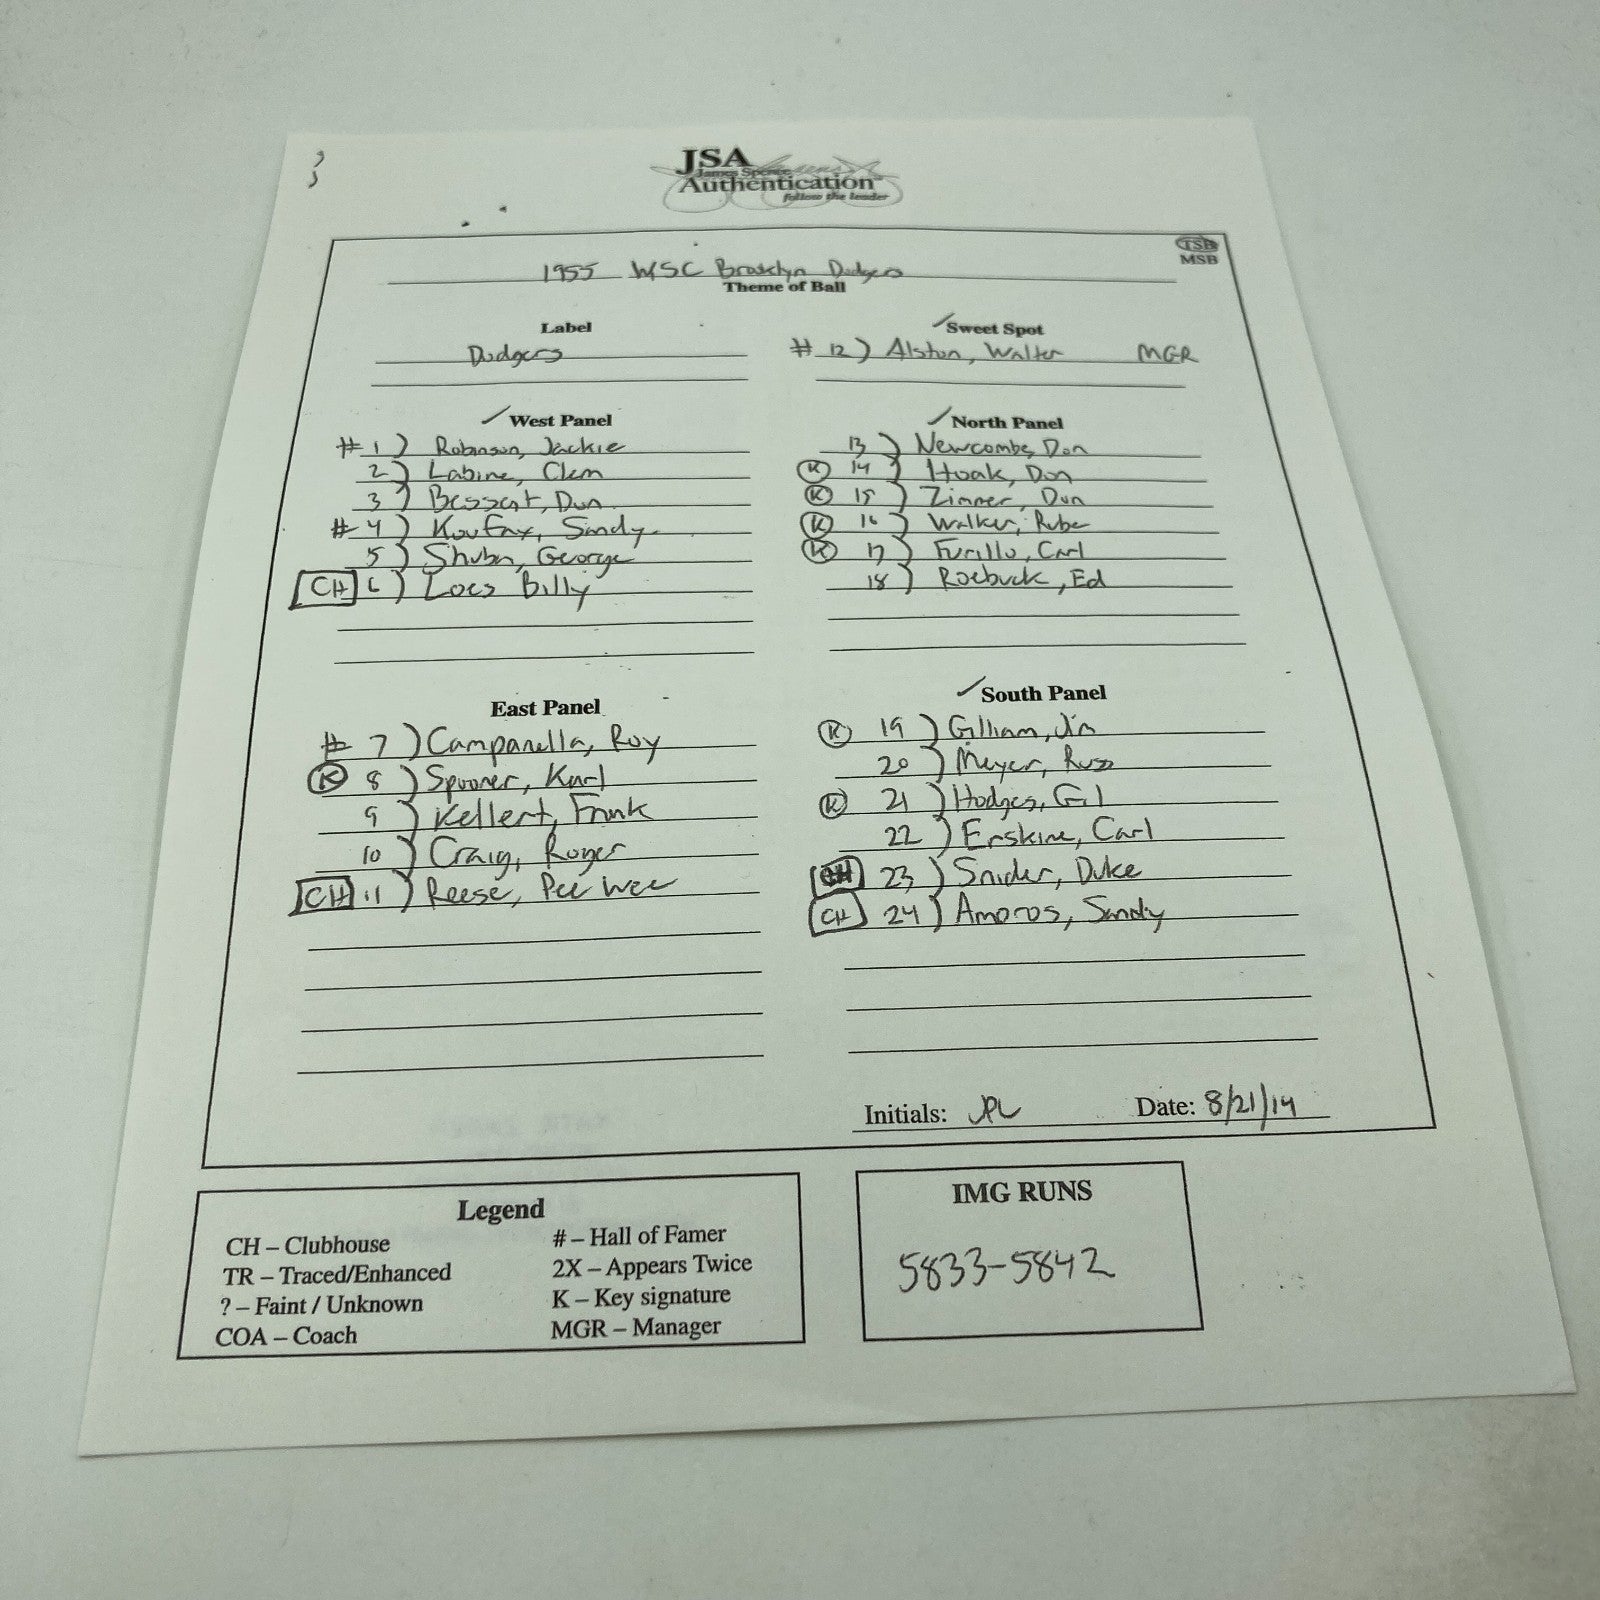 JSA
James Spence
Authentication
follow the leader
TSB
MSB
1955 WSC Brooklyn Dodgers
Theme of Ball
Label
Dodgers
Sweet Spot
# 12) Alston, Walter MGR
West Panel
# 1) Robinson, Jackie
2) Labine, Clem
3) Bessent, Don
# 4) Koufax, Sandy
5) Shuba, George
CH 6) Loes Billy
North Panel
13) Newcombe, Don
K 14) Hoak, Don
K 15) Zimmer, Don
K 16) Walker, Rube
K 17) Furillo, Carl
18) Roebuck, Ed
East Panel
# 7) Campanella, Roy
K 8) Spooner, Karl
9) Kellert, Frank
10) Craig, Roger
CH 11) Reese, Pee Wee
South Panel
K 19) Gilliam, Jim
20) Meyer, Russ
K 21) Hodges, Gil
22) Erskine, Carl
23) Snider, Duke
CH 24) Amoros, Sandy
Initials: JPL Date: 8/21/14
Legend
CH – Clubhouse
TR – Traced/Enhanced
? – Faint / Unknown
COA – Coach
# – Hall of Famer
2X – Appears Twice
K – Key signature
MGR – Manager
IMG RUNS
5833-5842